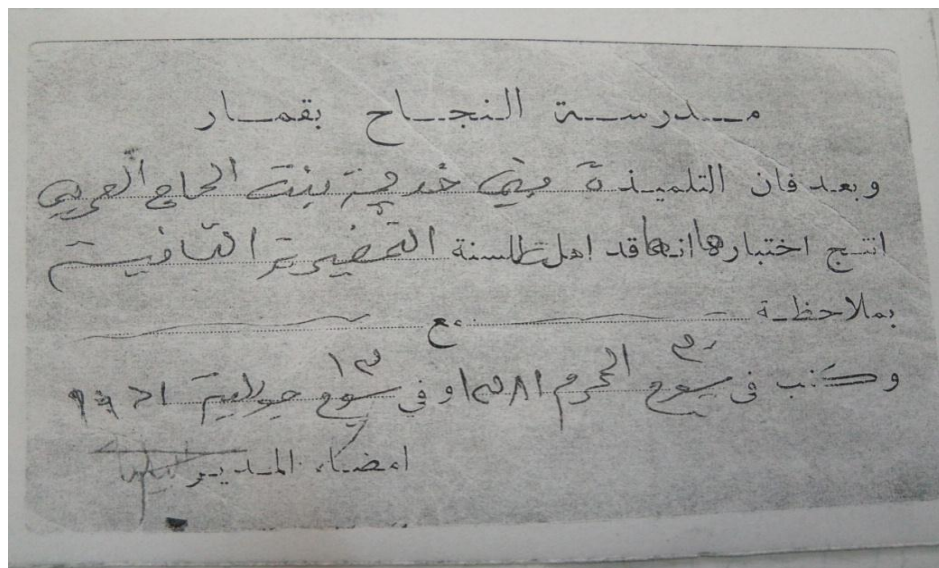 مدرسة النجاح بقمار
وبعد فان التلميذة خديجة بنت الحاج العربي
انتج اختبارها انها قد اهلت للسنة التحضيرية الثانية
بملاحظة ع
وكتب في يوم المحرم ١٣٨١ و في يوم ١٣ جولية ١٩٦١
امضاء المدير